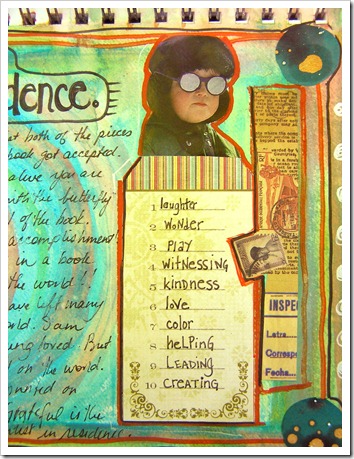 dence.
at both of the pieces
book got accepted.
alive you are
with the butterfly
of the book.
accomplishment!
in a book
the world!!
ave left many
orld. I am
ing loved. But
on the world.
grateful is the
ist in residence.
1 laughter
2 Wonder
3 PLAY
4 WITNESSING
5 kindness
6 love
7 color
8 helping
9 LEADING
10 CREATING
INSPE
Letra
Corresp
Fecha